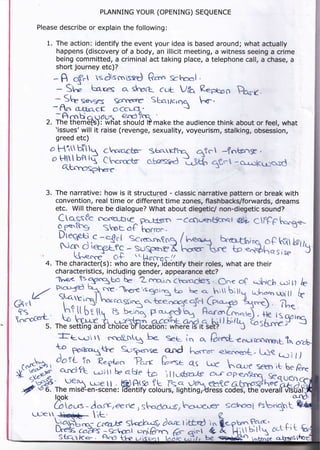 PLANNING YOUR (OPENING) SEQUENCE
Please describe or explain the following:
1. The action: identify the event your idea is based around; what actually
happens (discovery of a body, an illicit meeting, a witness seeing a crime
being committed, a criminal act taking place, a telephone call, a chase, a
short journey etc)?
- A girl is dismissed from school.
- She takes a short cut via Repton Park.
- She senses someone stalking her.
- An attack occurs.
- Ambiguous ending.
2. The theme(s): what should it make the audience think about or feel, what
'issues' will it raise (revenge, sexuality, voyeurism, stalking, obsession,
greed etc)
o Hillbilly character stalking girl - intense.
o Hillbilly Character obsessed with girl - awkward
atmosphere
3. The narrative: how is it structured - classic narrative pattern or break with
convention, real time or different time zones, flashbacks/forwards, dreams
etc. Will there be dialogue? What about diegetic/ non-diegetic sound?
Classic narrative pattern - conventional Cliff hanger.
opening shot of horror.
Diegetic - girl screaming / heavy breathing of hillbilly
Non diegetic - suspense & horror to emphasise
theme of "Horror"
4. The character(s): who are they, identify their roles, what are their
characteristics, including gender, appearance etc?
There is going to be 2 main characters. One of which will be
played by me. There is going to be a hillbilly, whom will be
stalking/harassing a teenage girl
hillbilly is being played by
Girl
is
innocent.
to have a accent and a hillbilly costume
5. The setting and choice of location: where is it set?
It will mainly be set in a forest environment in order
to portray the suspense and horror element. We will
do it in Repton Park forest as we have seen it before
and it will be able to illustrate our opening sequence
very well. Also it is a very atmospheric
6. The mise-en-scene: identify colours, lighting, dress codes, the overall visual
look
Colours - dark, eerie, shadows, however school is bright
well lit.
Lighting: create shadows, dark litted in Repton Park.
Dress codes - School uniform for girl & Hillbilly outfit for
stalker. And the vision look will be an intense atmosphere